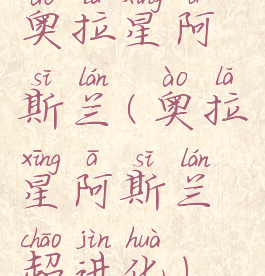 ào lā xīng ā
奥拉星阿
sī lán ào lā
斯兰(奥拉
xīng ā sī lán
星阿斯兰
chāo jìn huà
超进化)